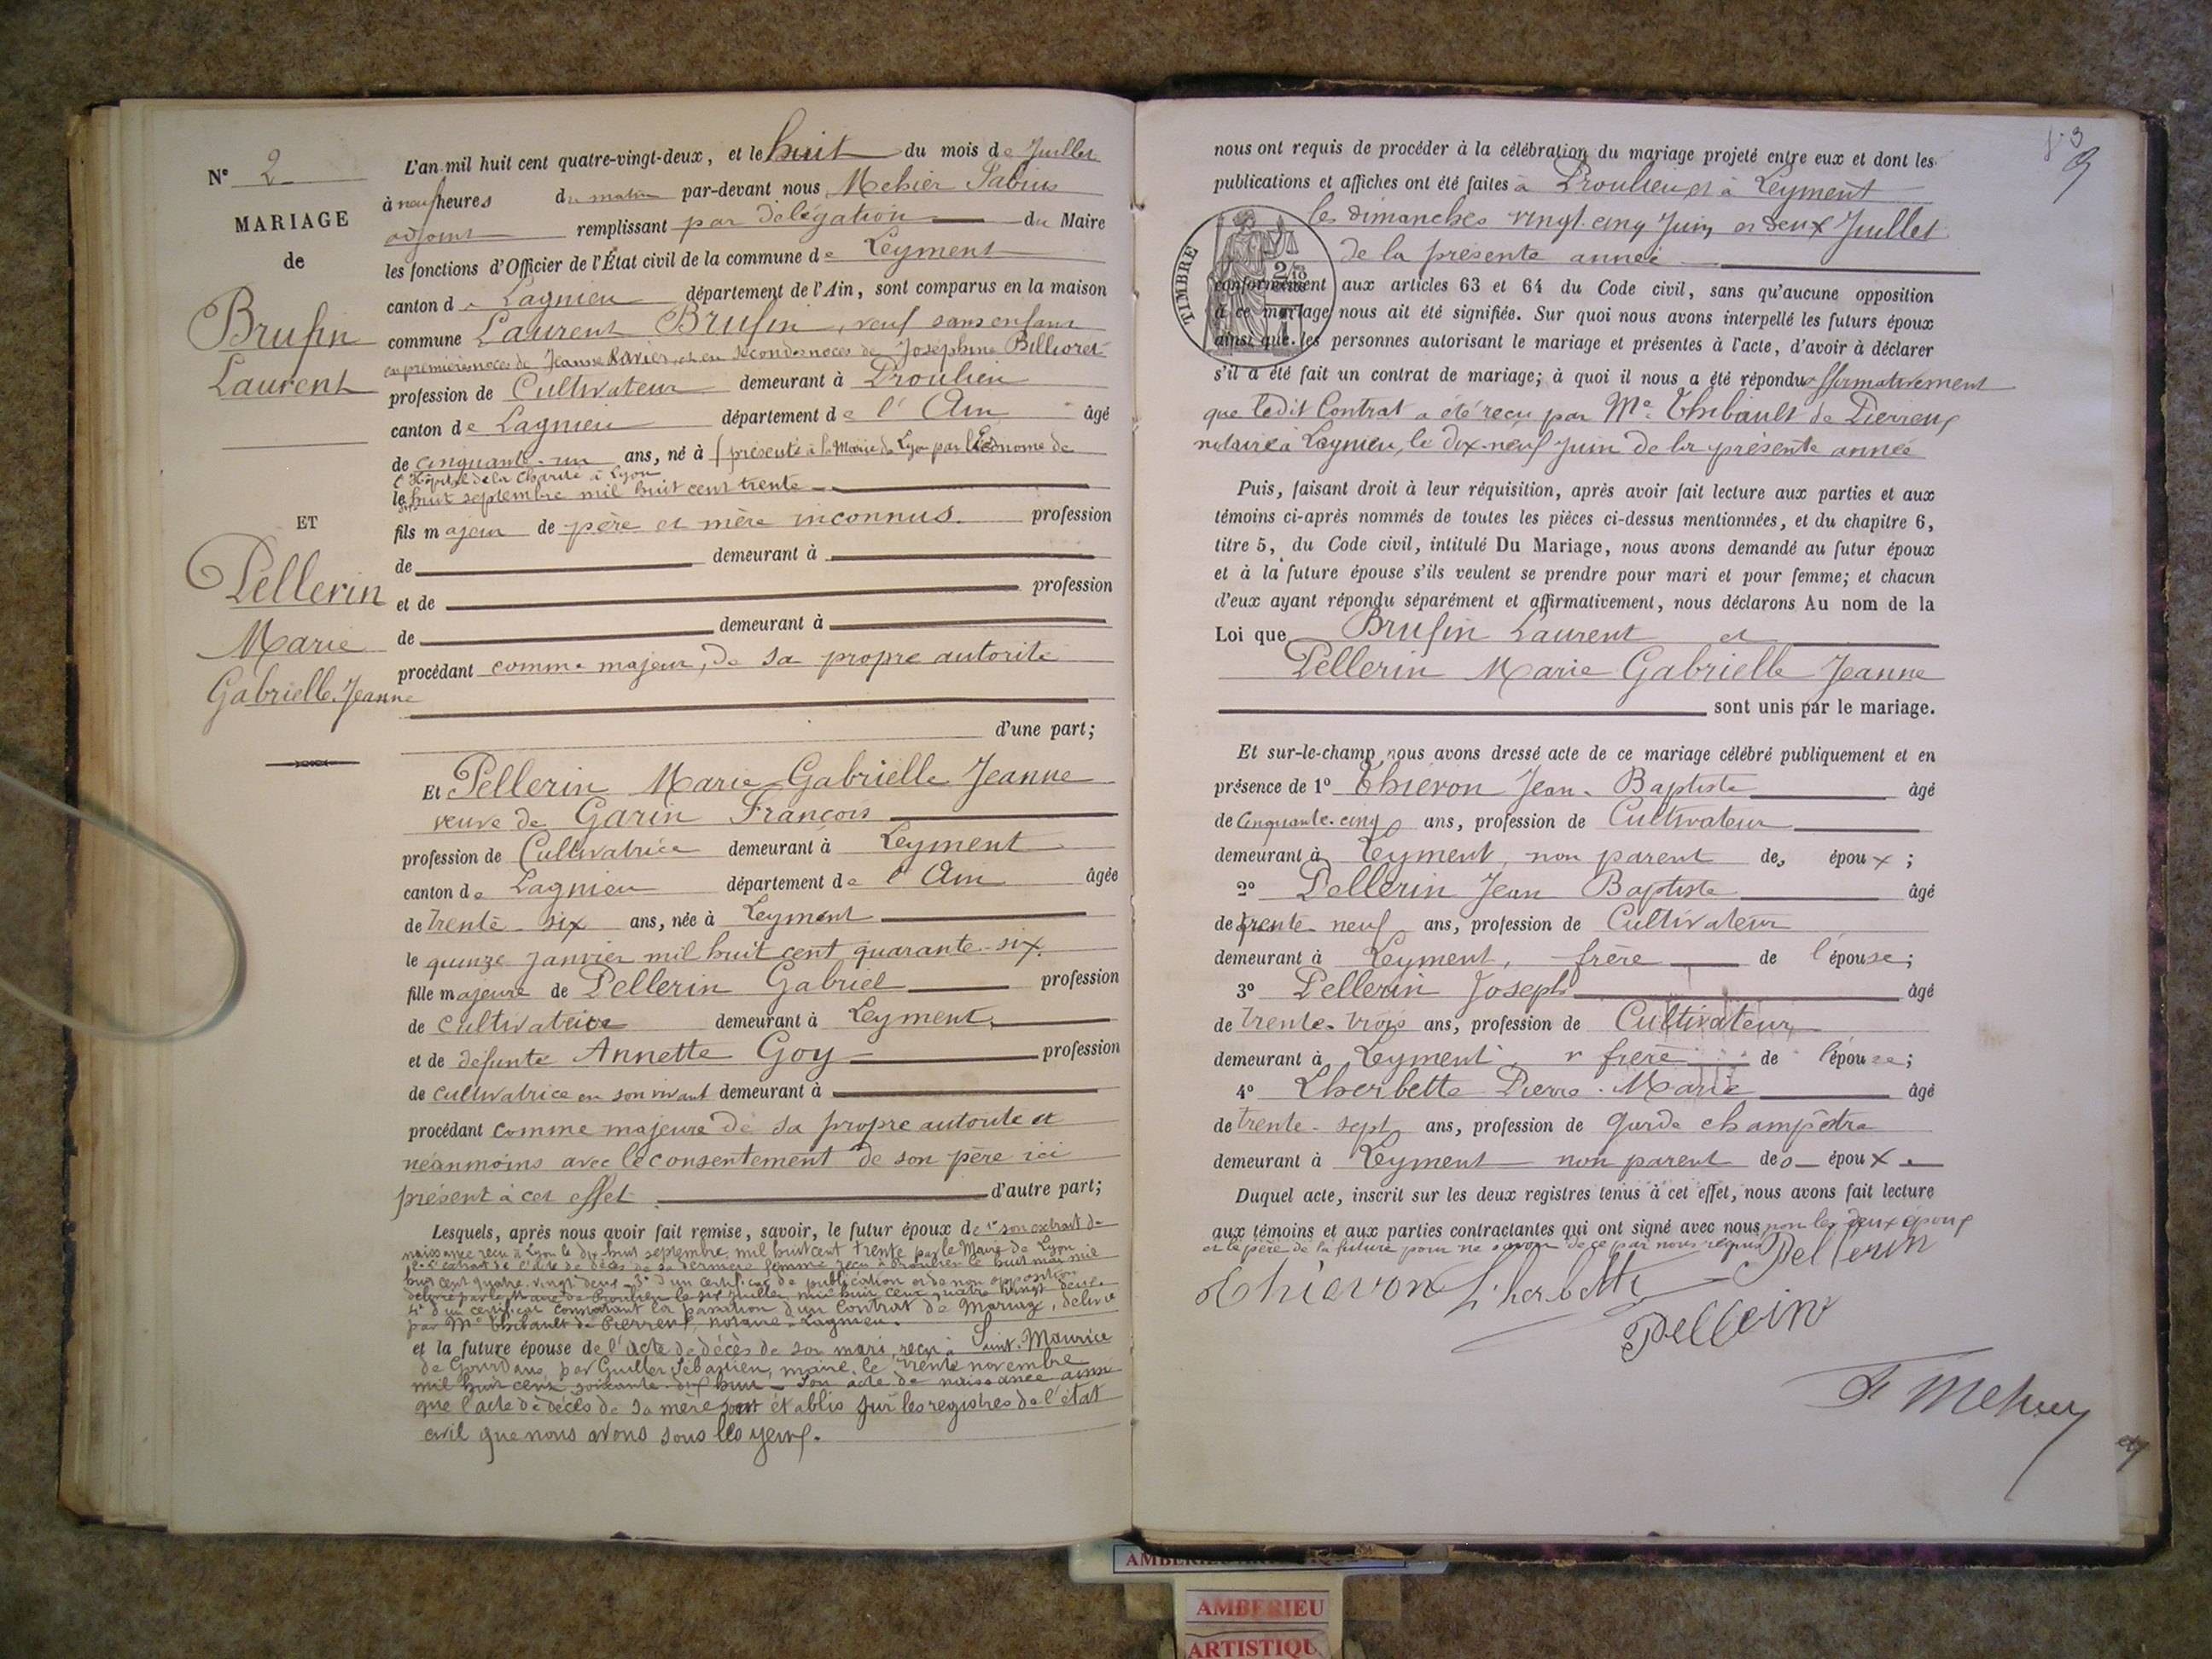 Nº 2
MARIAGE
de
Brufin
Laurent
ET
Pellerin
Marie
Gabrielle Jeanne
L'an mil huit cent quatre-vingt-deux, et le huit du mois de Juillet
à neuf heures du matin par-devant nous Mehier Sabin
adjoint remplissant par délégation du Maire
les fonctions d'Officier de l'État civil de la commune de Leyment
canton de Lagnieu département de l'Ain, sont comparus en la maison
commune Laurent Brufin, veuf sans enfant
en premières noces de Jeanne Ravier, et en secondes noces de Joséphine Billioret
profession de Cultivateur demeurant à Proulieu
canton de Lagnieu département de l'Ain âgé
de cinquante-un ans, né à (présenté à la Mairie de Lyon par l'Econome de
l'Hôpital de la Charité à Lyon
le huit septembre mil huit cent trente
fils majeur de père et mère inconnus. profession
de demeurant à
et de profession
de demeurant à
procédant comme majeur, de sa propre autorité
d'une part;
Et Pellerin Marie Gabrielle Jeanne
veuve de Garin François
profession de Cultivatrice demeurant à Leyment
canton de Lagnieu département de l'Ain âgée
de trente-six ans, née à Leyment
le quinze janvier mil huit cent quarante-six.
fille majeure de Pellerin Gabriel profession
de demeurant à Leyment,
et de défunte Annette Goy profession
de cultivatrice en son vivant demeurant à
procédant comme majeure de sa propre autorité et
néanmoins avec le consentement de son père ici
présent à cet effet d'autre part;
Lesquels, après nous avoir fait remise, savoir, le futur époux de 1º son extrait de
naissance reçu à Lyon le dix huit septembre mil huit cent trente par le Maire de Lyon
2º l'extrait de l'acte de décès de sa dernière femme reçu à Proulieu le huit mai mil
huit cent quatre-vingt deux 3º d'un certificat de publication et de non opposition
délivré par le Maire de Proulieu le six juillet mil huit cent quatre vingt deux
4º d'un certificat constatant la passation d'un Contrat de Mariage, délivré
par Me Thibault de Pierreux, notaire à Lagnieu.
et la future épouse de l'acte de décès de son mari, reçu à Saint-Maurice
de Gourdans, par Sébastien, maire, le trente novembre
mil huit cent soixante-dix huit - Son acte de naissance ainsi
que l'acte de décès de sa mère sont établis sur les registres de l'état
civil que nous avons sous les yeux.
9
nous ont requis de procéder à la célébration du mariage projeté entre eux et dont les
publications et affiches ont été faites à Proulieu et à Leyment
les dimanches vingt-cinq Juin et deux Juillet
de la présente année
TIMBRE
conformément aux articles 63 et 64 du Code civil, sans qu'aucune opposition
à ce mariage nous ait été signifiée. Sur quoi nous avons interpellé les futurs époux
ainsi que les personnes autorisant le mariage et présentes à l'acte, d'avoir à déclarer
s'il a été fait un contrat de mariage; à quoi il nous a été répondu affirmativement
que ledit Contrat a été reçu par Me Thibault de Pierreux
notaire à Lagnieu, le dix-neuf juin de la présente année
Puis, faisant droit à leur réquisition, après avoir fait lecture aux parties et aux
témoins ci-après nommés de toutes les pièces ci-dessus mentionnées, et du chapitre 6,
titre 5, du Code civil, intitulé Du Mariage, nous avons demandé au futur époux
et à la future épouse s'ils veulent se prendre pour mari et pour femme; et chacun
d'eux ayant répondu séparément et affirmativement, nous déclarons Au nom de la
Loi que Brufin Laurent et
Pellerin Marie Gabrielle Jeanne
sont unis par le mariage.
Et sur-le-champ nous avons dressé acte de ce mariage célébré publiquement et en
présence de 1º Thiévon Jean-Baptiste âgé
de cinquante-cinq ans, profession de Cultivateur
demeurant à Leyment, non parent des époux;
2º Pellerin Jean Baptiste âgé
de trente-neuf ans, profession de Cultivateur
demeurant à Leyment, frère de l'épouse;
3º Pellerin Joseph âgé
de trente-trois ans, profession de Cultivateur
demeurant à Leyment, frère de l'épouse;
4º Lherbette Pierre-Marie âgé
de trente-sept ans, profession de garde champêtre
demeurant à Leyment non parent des époux.
Duquel acte, inscrit sur les deux registres tenus à cet effet, nous avons fait lecture
aux témoins et aux parties contractantes qui ont signé avec nous non les deux époux
et le père de la future pour ne savoir de ce par nous requis
Thievon Lherbette Pellerin
Pellerin
AMBERIEU
ARTISTIQU